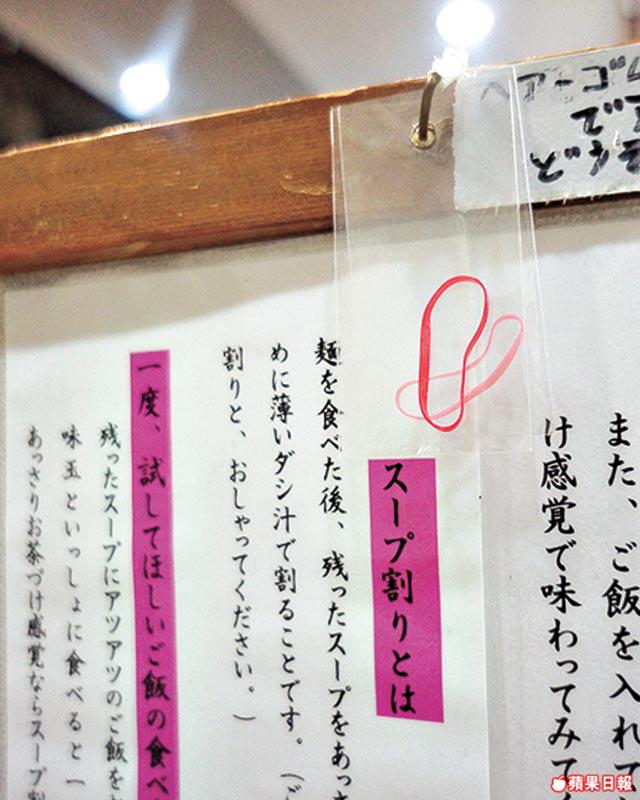 また、ご飯を入れて
け感覚で味わってみて
スープ割りとは
麺を食べた後、残ったスープをあっさ
めに薄いダシ汁で割ることです。(ご
割りと、おしゃってください。)
一度、試してほしいご飯の食べ
残ったスープにアツアツのご飯を
味玉といっしょに食べると一
あっさりお茶づけ感覚ならスープ割
蘋果日報